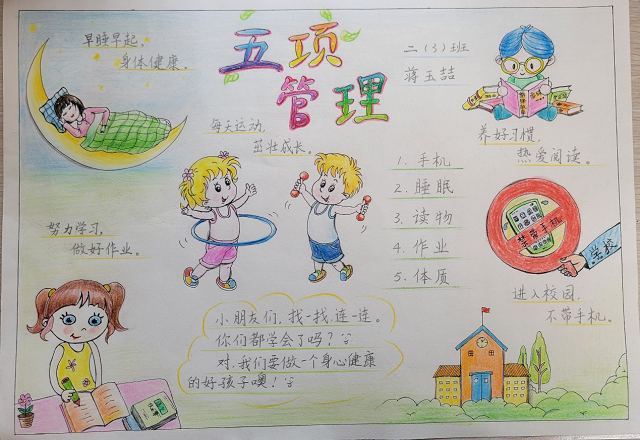 五项
管理
早睡早起,
身体健康。
二(3)班
蒋玉喆
每天运动,
茁壮成长。
养好习惯,
热爱阅读。
1. 手机
2. 睡眠
3. 读物
4. 作业
5. 体质
努力学习,
做好作业。
禁带手机
学校
进入校园,
不带手机。
小朋友们,找一找,连一连。
你们都学会了吗?
对,我们要做一个身心健康
的好孩子噢!